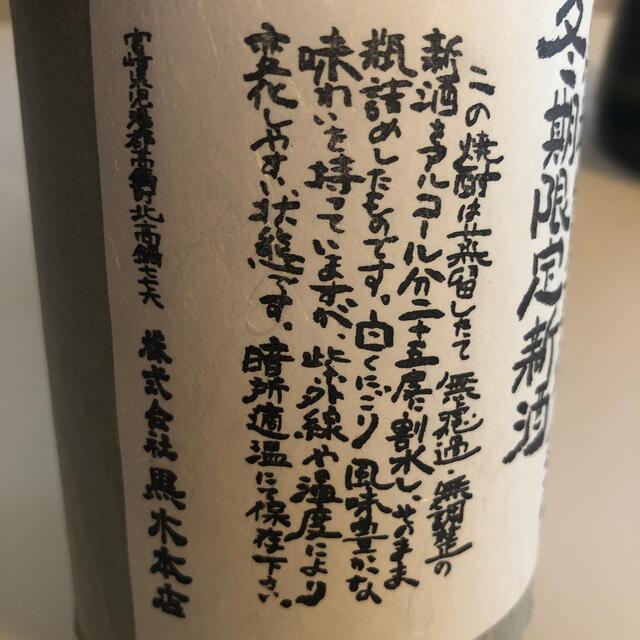 冬期限定新酒
この焼酎は蒸留したて 無濾過・無調整の
新酒をアルコール分二十五度に割水し、そのまま
瓶詰めしたものです。白くにごり 風味豊かな
味わいを持っていますが、紫外線や温度により
変化しやすい状態です。暗所適温にて保存下さい。
宮崎県児湯郡高鍋町北高鍋七七六 株式会社 黒木本店